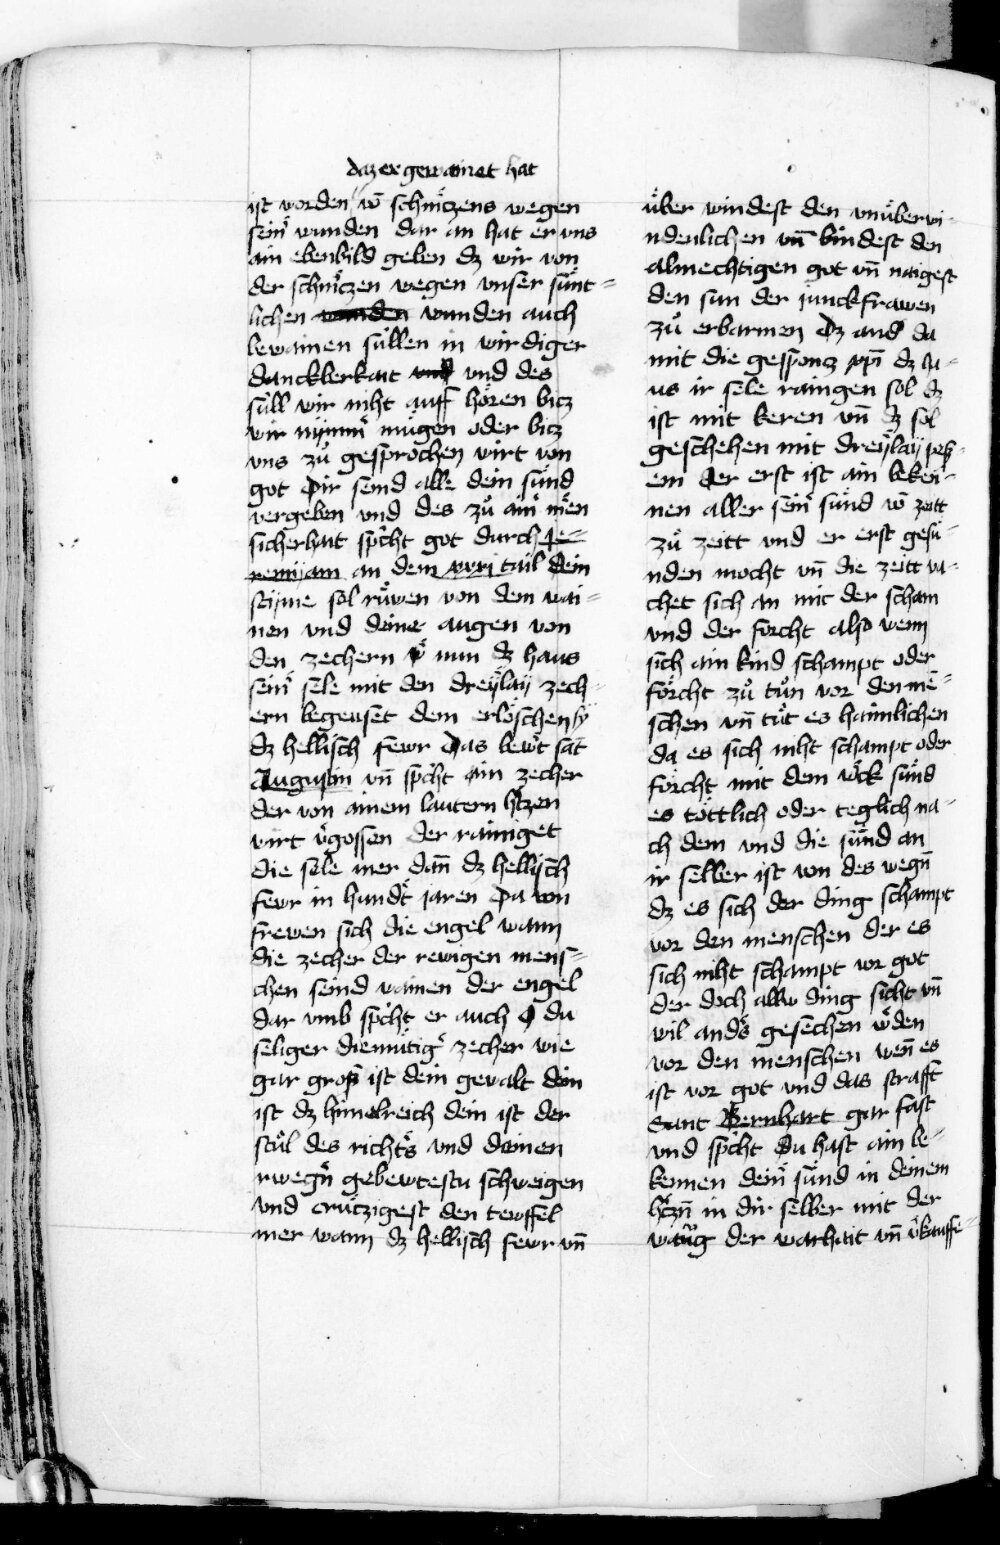 daz er gewainet hat
ist worden vō schmͤczens wegen
seinͬ wunden dar an hat er vns
ain ebenbild geben dz wir von
der schmͤczen wegen vnser sünt=
lichen wunden wunden auch
bewainen süllen in wirdiger
danckberkait vnd vnd des
süll wir niht auff hören bicz
wir nymmͤ mügen oder bicz
vns zů gesprochen wirt von
got Dir seind alle dein sünd
vergeben vnd des zů ainͬ mͤen
sicherhait sp̄cht got durch Je=
remijam an dem xxxj tail dein
stijme sol růwen von dem wai=
nen vnd deine augen von
den zechern vͤ nun dz haus
seinͬ sele mit den dreÿlaij zech=
ern begeuset dem erlöschen sÿ
dz hellisch fewr Das bewͤt sāt
Augustin vn̄ sp̄cht ain zecher
der von ainem lautern hͤtzen
wirt v̄gossen der rainiget
die sele mer dan̄ dz hellisch
fewr in hundͤt jaren Da von
frewen sich die engel wann
die zecher der rewigen mens=
chen seind wainen der engel
dar vmb sp̄cht er auch O du
seliger diemütigͬ zecher wie
gar groß ist dein gewalt dein
ist dz himelreich dein ist der
stůl des richtͤs vnd deinen
rwegn̄ gebewtestu schweigen
vnd crützigest den tewffel
mer wann dz hellisch fewr vn̄
über windest den vnüberwi=
ndenlichen vn̄ bindest den
almechtigen got vn̄ naigest
den sun der junckfrawen
zů erbarmen Dz and̾ da
mit die gesponcz xpī dz ha=
us ir sele rainigen sol dz
ist mit keren vn̄ dz sol
geschehen mit dreÿlaij pes=
em der erst ist ain beken=
nen aller seinͬ sünd vō zeitt
zů zeitt vnd er erst gesü=
nden mocht vn̄ die zeitt va=
chet sich an mit der scham
vnd der forcht also wenn
sich ain kind schampt oder
förcht zů tůn vor den mē=
schen vn̄ tůt es haimlichen
da es sich niht schampt oder
förcht mit dem wͤck sünd
es töttlich oder teglich na=
ch dem vnd die sünd an
ir selber ist von des wegn̄
dz es sich der ding schampt
vor den menschen der es
sich niht schampt vor got
der doch allw ding sicht vn̄
wil andͤs gesechen wͤden
vor den menschen wen̄ es
ist vor got vnd das strafft
Sant Bernhart gar fast
vnd sp̄cht Du hast ain be=
kennen deinͬ sünd in deinem
hͤtzn̄ in dir selber mit der
waūg der warhait vn̄ v̄kauffe=